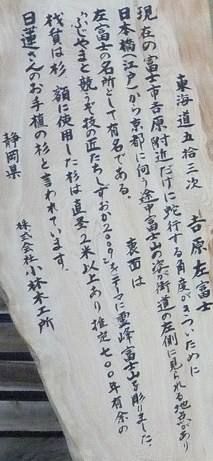 東海道五拾三次　吉原左富士
現在の富士市吉原附近だけに蛇行する角度がきついために
日本橋(江戸)から京都に向う途中富士山の姿が街道の左側に見られる地点があり
左富士の名所として有名である。　裏面は
ふじやまと競うぞ技の匠たちしずおか2009をテーマに霊峰富士山を彫りました。
材質は杉　額に使用した杉は直径2米以上あり推定七〇〇年有余の
日蓮さんのお手植の杉と言われています。
静岡県
株式会社小林木工所